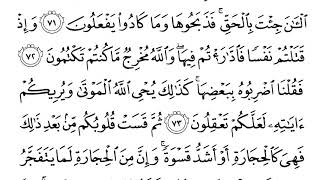 ٱلْـَٰٔنَ جِئْتَ بِٱلْحَقِّ ۚ فَذَبَحُوهَا وَمَا كَادُوا۟ يَفْعَلُونَ ٧١ وَإِذْ
قَتَلْتُمْ نَفْسًا فَٱدَّٰرَْٰٔتُمْ فِيهَا ۖ وَٱللَّهُ مُخْرِجٌ مَّا كُنتُمْ تَكْتُمُونَ ٧٢
فَقُلْنَا ٱضْرِبُوهُ بِبَعْضِهَا ۚ كَذَٰلِكَ يُحْىِ ٱللَّهُ ٱلْمَوْتَىٰ وَيُرِيكُمْ
ءَايَٰتِهِۦ لَعَلَّكُمْ تَعْقِلُونَ ٧٣ ثُمَّ قَسَتْ قُلُوبُكُم مِّنۢ بَعْدِ ذَٰلِكَ
فَهِىَ كَٱلْحِجَارَةِ أَوْ أَشَدُّ قَسْوَةً ۚ وَإِنَّ مِنَ ٱلْحِجَارَةِ لَمَا يَتَفَجَّرُ